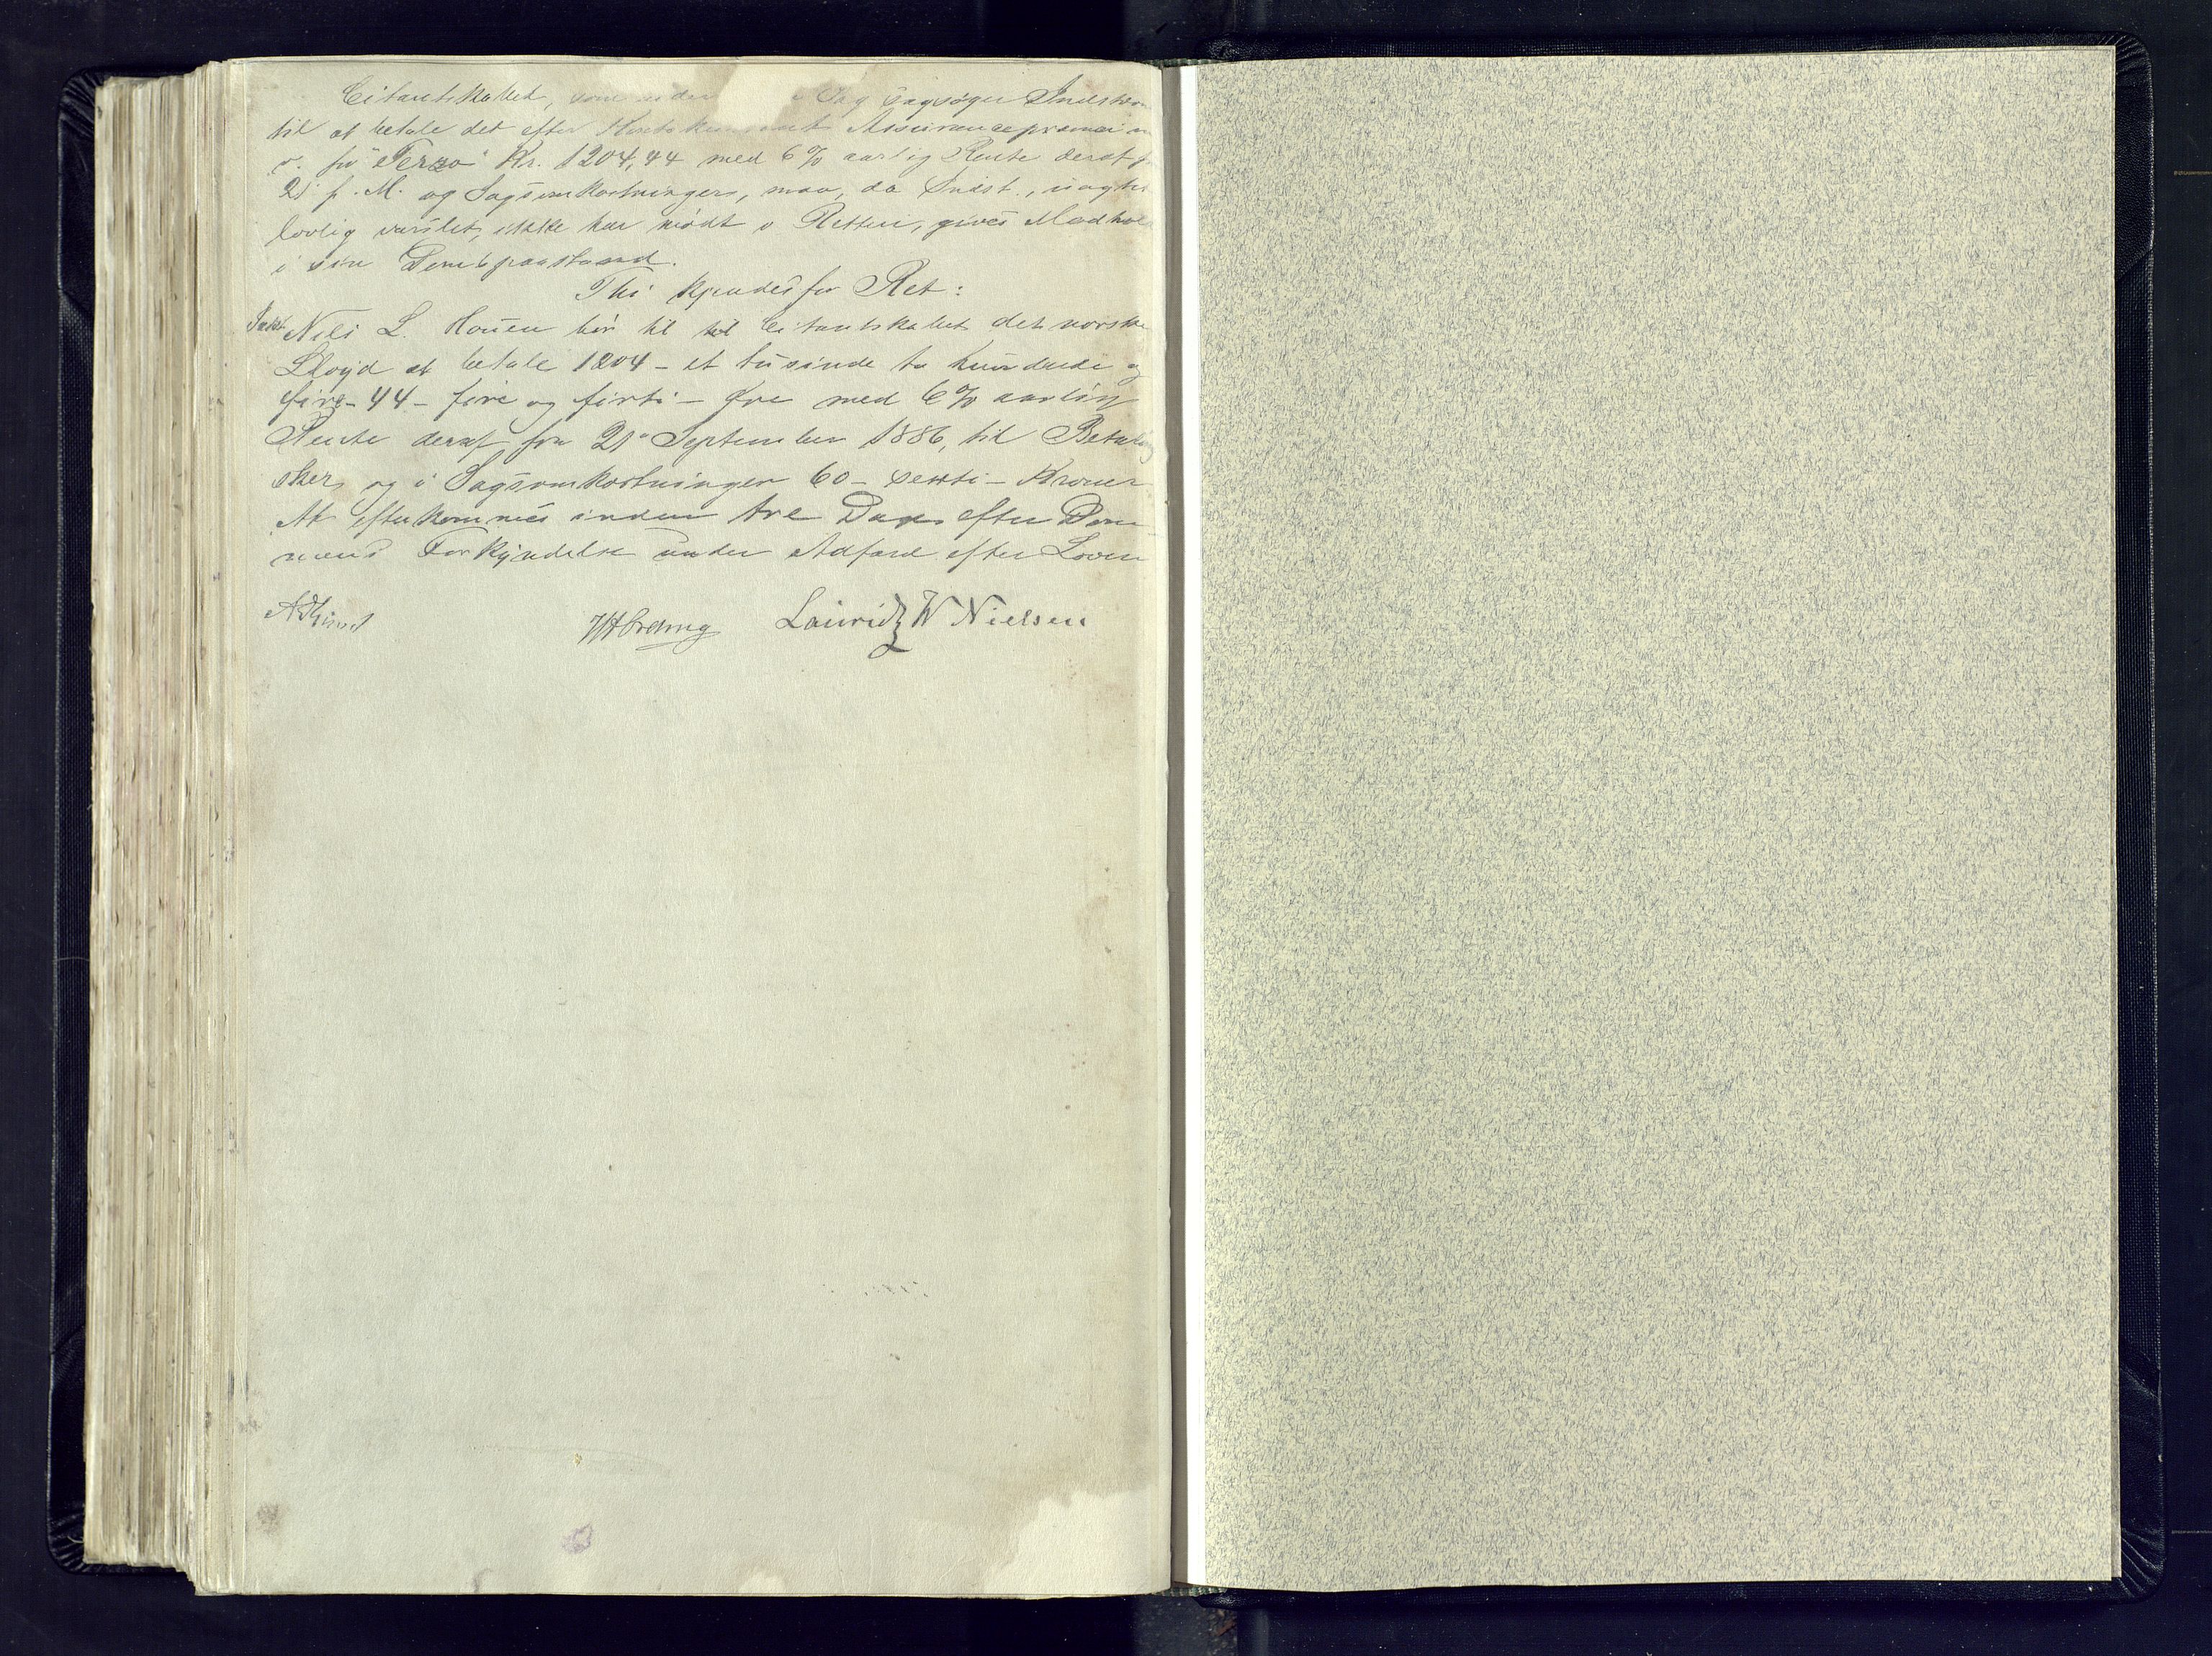 Citantskabet, som under Sag sagsøger Indstevn
til at betale det efter Assurancepræmie
for "Terzo" Kr. 1204,44 med 6% aarlig Rente deraf
21 f. M. og Sagsomkostninger, maa, da Indst., uagtet
lovlig varslet, ikke har mødt i Retten, gives Medhold
i sin Domspaastand.
Thi kjendes for Ret:
Indst Nils L. Houen bør til Citantskabet det norske
Lloyd at betale 1204 - et tusinde to hundrede og
fire - 44 - fire og firti - Øre med 6% aarlig
Rente deraf fra 21 September 1886, til Betaling
sker, og i Sagsomkostninger 60 - sexti - Kroner
At efterkommes inden tre Dage efter Dom
mens Forkyndelse under Adfærd efter Loven
Lauridz W Nielsen